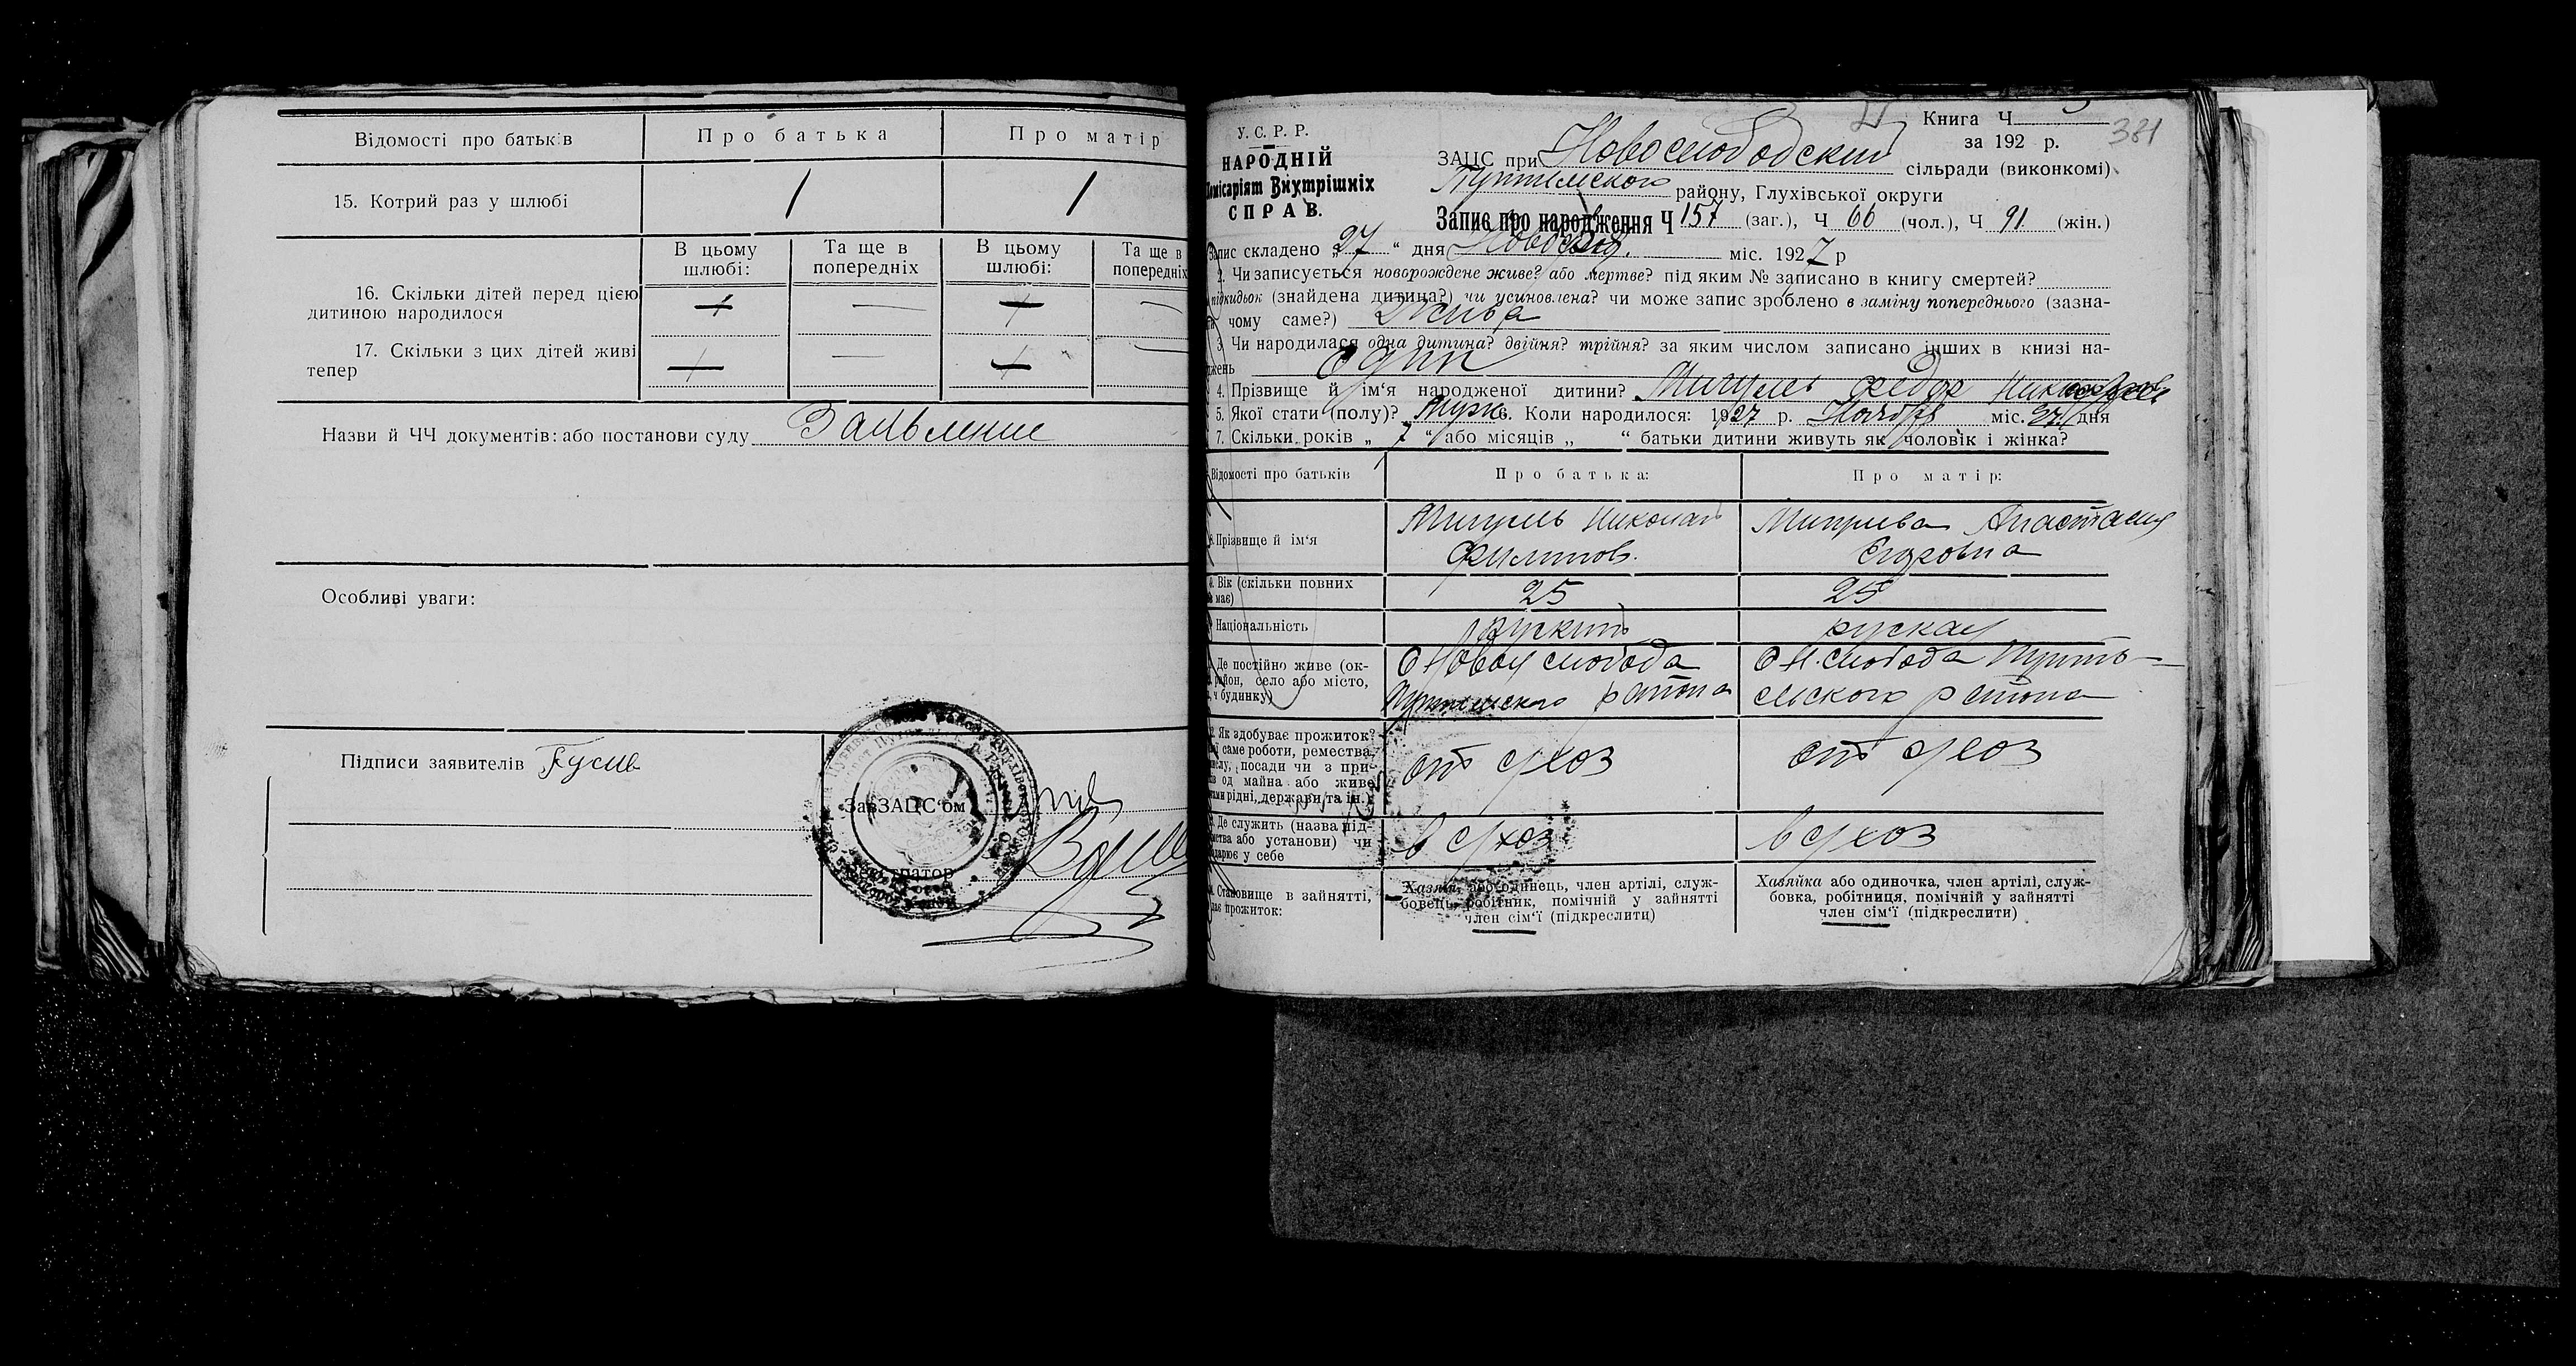 Відомості про батьків
Про батька
Про матір
15. Котрий раз у шлюбі
1
1
В цьому шлюбі:
Та ще в попередніх
В цьому шлюбі:
Та ще в попередніх
16. Скільки дітей перед цією
дитиною народилося
17. Скільки з цих дітей живі
тепер
Назви й ЧЧ документів: або постанови суду Заявление
Особливі уваги:
Підписи заявителів Гусев
ЗавЗАЦС'ом
Реєстратор
У. С. Р. Р.
НАРОДНІЙ
Комісаріят Внутрішніх
СПРАВ.
Книга Ч
за 192 р.
381
ЗАЦС при Новослободский сільради (виконкомі)
Путивльского району, Глухівської округи
Запис про народження Ч 157 (заг.), Ч 66 (чол.), Ч 91 (жін.)
Запис складено „27“ дня Ноября міс. 1927 р
2. Чи записується новорождене живе? або мертве? під яким № записано в книгу смертей?
підкидьок (знайдена дитина?) чи усиновлена? чи може запис зроблено в заміну попереднього (зазна-
чому саме?) Жива
3. Чи народилася одна дитина? двійня? трійня? за яким числом записано інших в книзі на-
джень один
4. Прізвище й ім'я народженої дитини? Федор
5. Якої стати (полу)? Муж 6. Коли народилося: 1927 р. Ноября міс. 27 дня
7. Скільки років „ 7 “ або місяців „ “ батьки дитини живуть як чоловік і жінка?
Відомості про батьків
Про батька:
Про матір:
Прізвище й ім'я
Николай
Филипов.
Анастасия
Егоровна
Вік (скільки повних
має)
25
25
Національність
руский
руская
Де постійно живе (ок-
район, село або місто,
ч будинку)
С Новая слобода
Путивльского района
С Н. слобода Путив-
льского района
Як здобуває прожиток?
саме роботи, ремества,
посади чи з при-
од майна або живе
рідні, держави та ін.)
от с/хоз
от с/хоз
Де служить (назва під-
ства або установи) чи
дарює у себе
в с/хоз
в с/хоз
Становище в зайнятті,
має прожиток:
Хазяїн, або одинець, член артілі, служ-
бовець, робітник, помічній у зайнятті
член сім'ї (підкреслити)
Хазяйка або одиночка, член артілі, служ-
бовка, робітниця, помічній у зайнятті
член сім'ї (підкреслити)